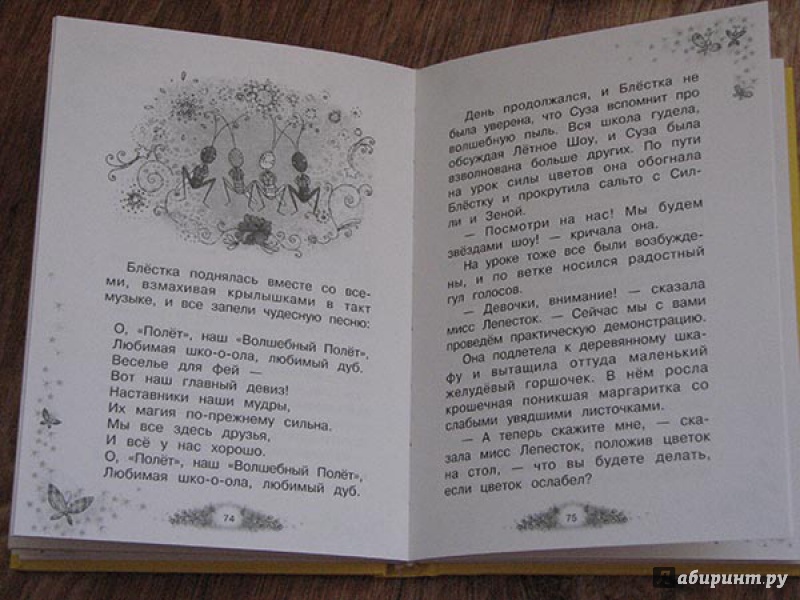 Блёстка поднялась вместе со все-
ми, взмахивая крылышками в такт
музыке, и все запели чудесную песню:
О, «Полёт», наш «Волшебный Полёт»,
Любимая шко-о-ола, любимый дуб.
Веселье для фей —
Вот наш главный девиз!
Наставники наши мудры,
Их магия по-прежнему сильна.
Мы все здесь друзья,
И всё у нас хорошо.
О, «Полёт», наш «Волшебный Полёт»,
Любимая шко-о-ола, любимый дуб.
74
День продолжался, и Блёстка не
была уверена, что Суза вспомнит про
волшебную пыль. Вся школа гудела,
обсуждая Лётное Шоу, и Суза была
взволнована больше других. По пути
на урок силы цветов она обогнала
Блёстку и прокрутила сальто с Сил-
ли и Зеной.
— Посмотри на нас! Мы будем
звёздами шоу! — кричала она.
На уроке тоже все были возбужде-
ны, и по ветке носился радостный
гул голосов.
— Девочки, внимание! — сказала
мисс Лепесток. — Сейчас мы с вами
проведём практическую демонстрацию.
Она подлетела к деревянному шка-
фу и вытащила оттуда маленький
желудёвый горшочек. В нём росла
крошечная поникшая маргаритка со
слабыми увядшими листочками.
— А теперь скажите мне, — ска-
зала мисс Лепесток, положив цветок
на стол, — что вы будете делать,
если цветок ослабел?
75
Лабиринт.ру